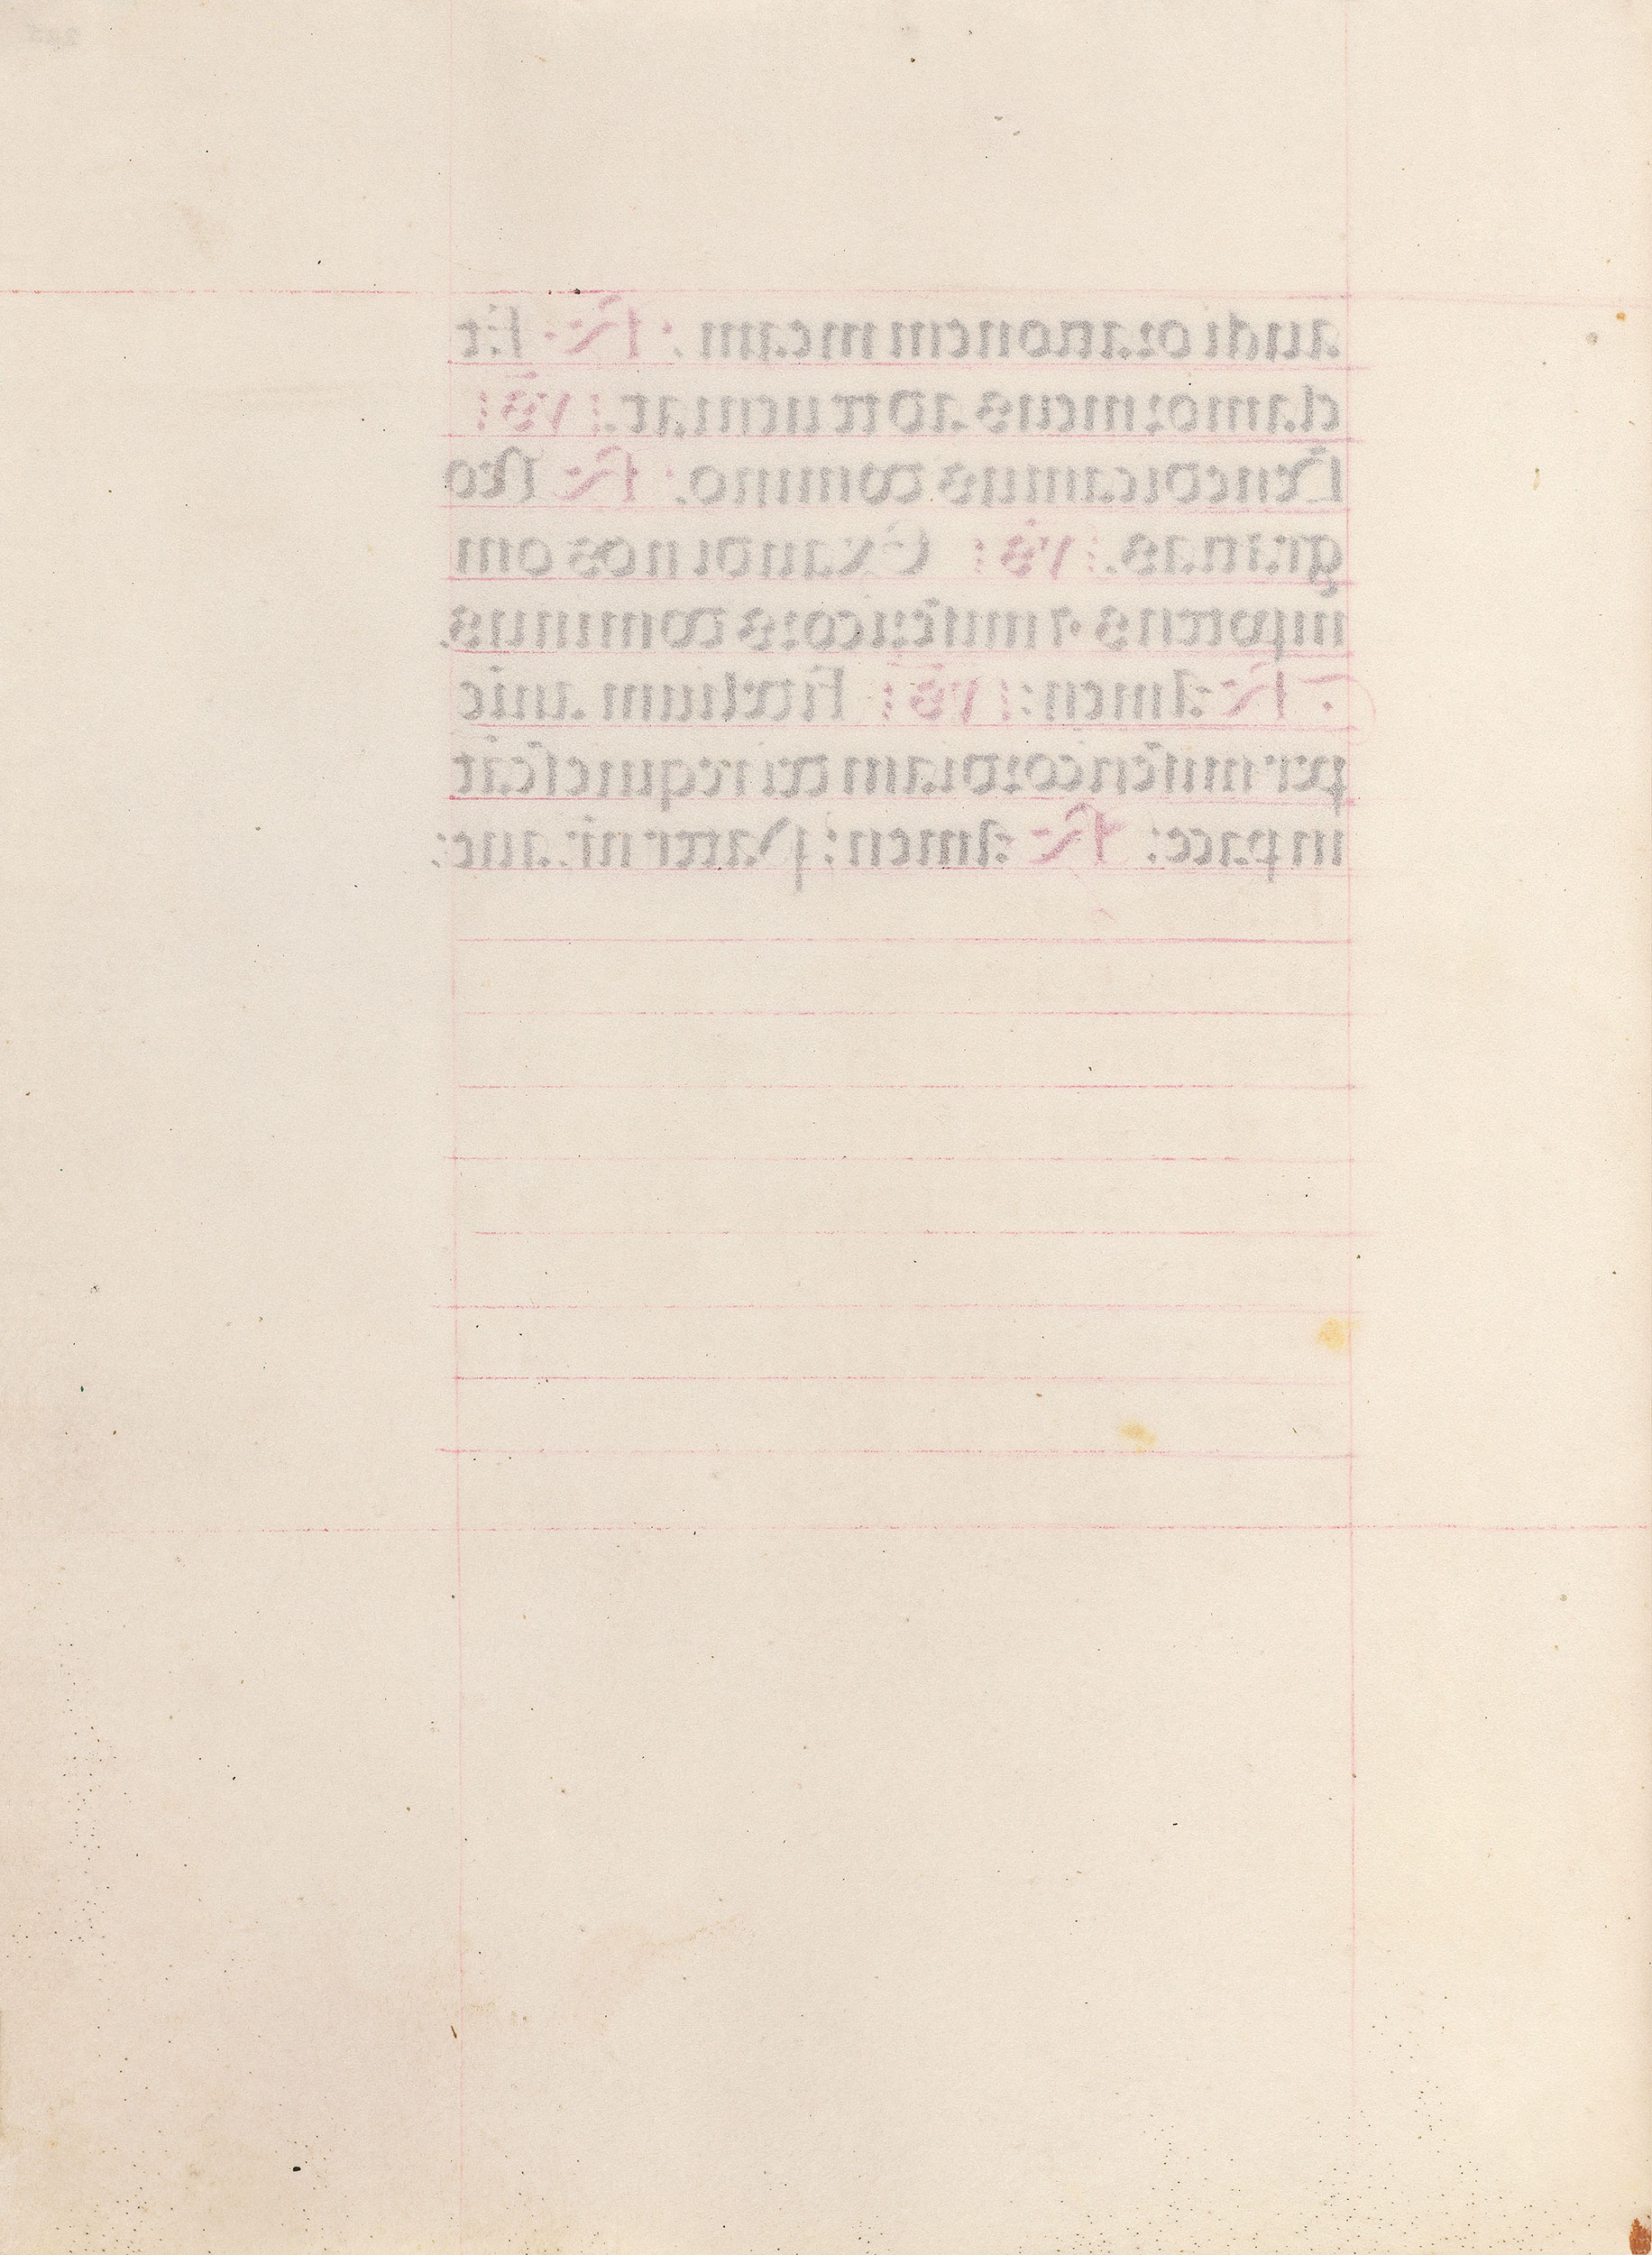 audi orationem meam : R⁊ · Et
clamor meus ad te ueniat. vs:
Benedicamus domino. R⁊ Deo
gratias. vs: Exaudi nos om
nipotens ⁊ misericors dominus.
R⁊ Amen: vs: Fidelium anime
per misericordiam dei requiescat
in pace: R⁊ Amen: Pater nr̄ aue: